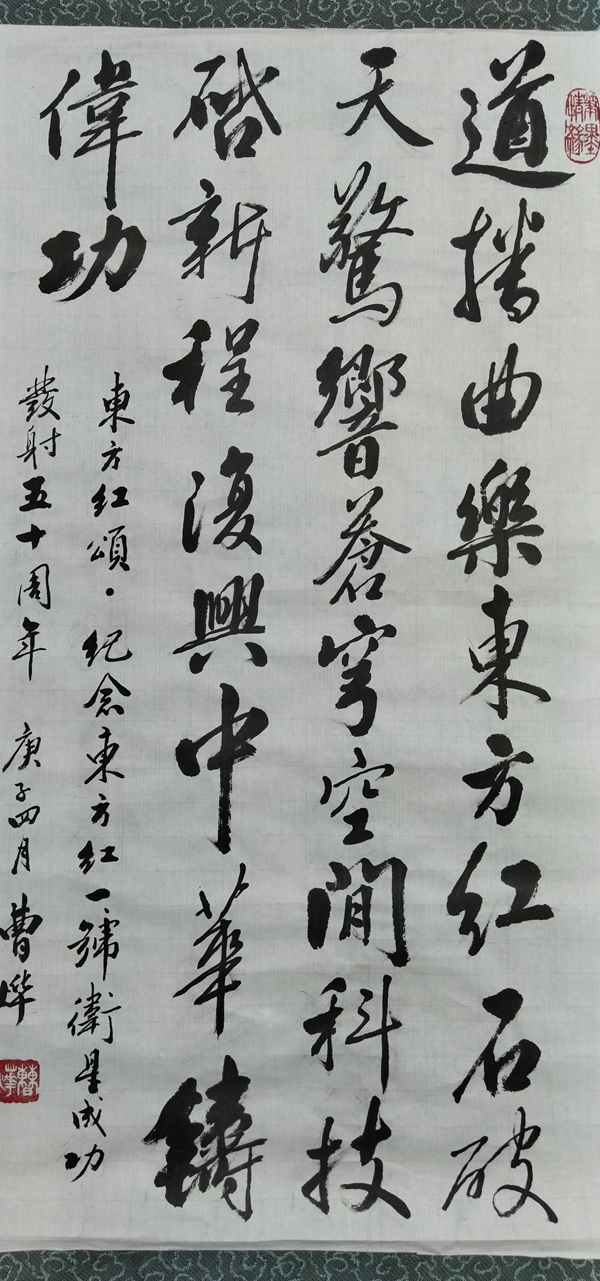 道播曲樂東方红石破
天驚響蒼穹空間科技
啓新程復興中華鑄
偉功
東方红頌·纪念東方红一號衛星成功
發射五十周年 庚子四月 曹燁